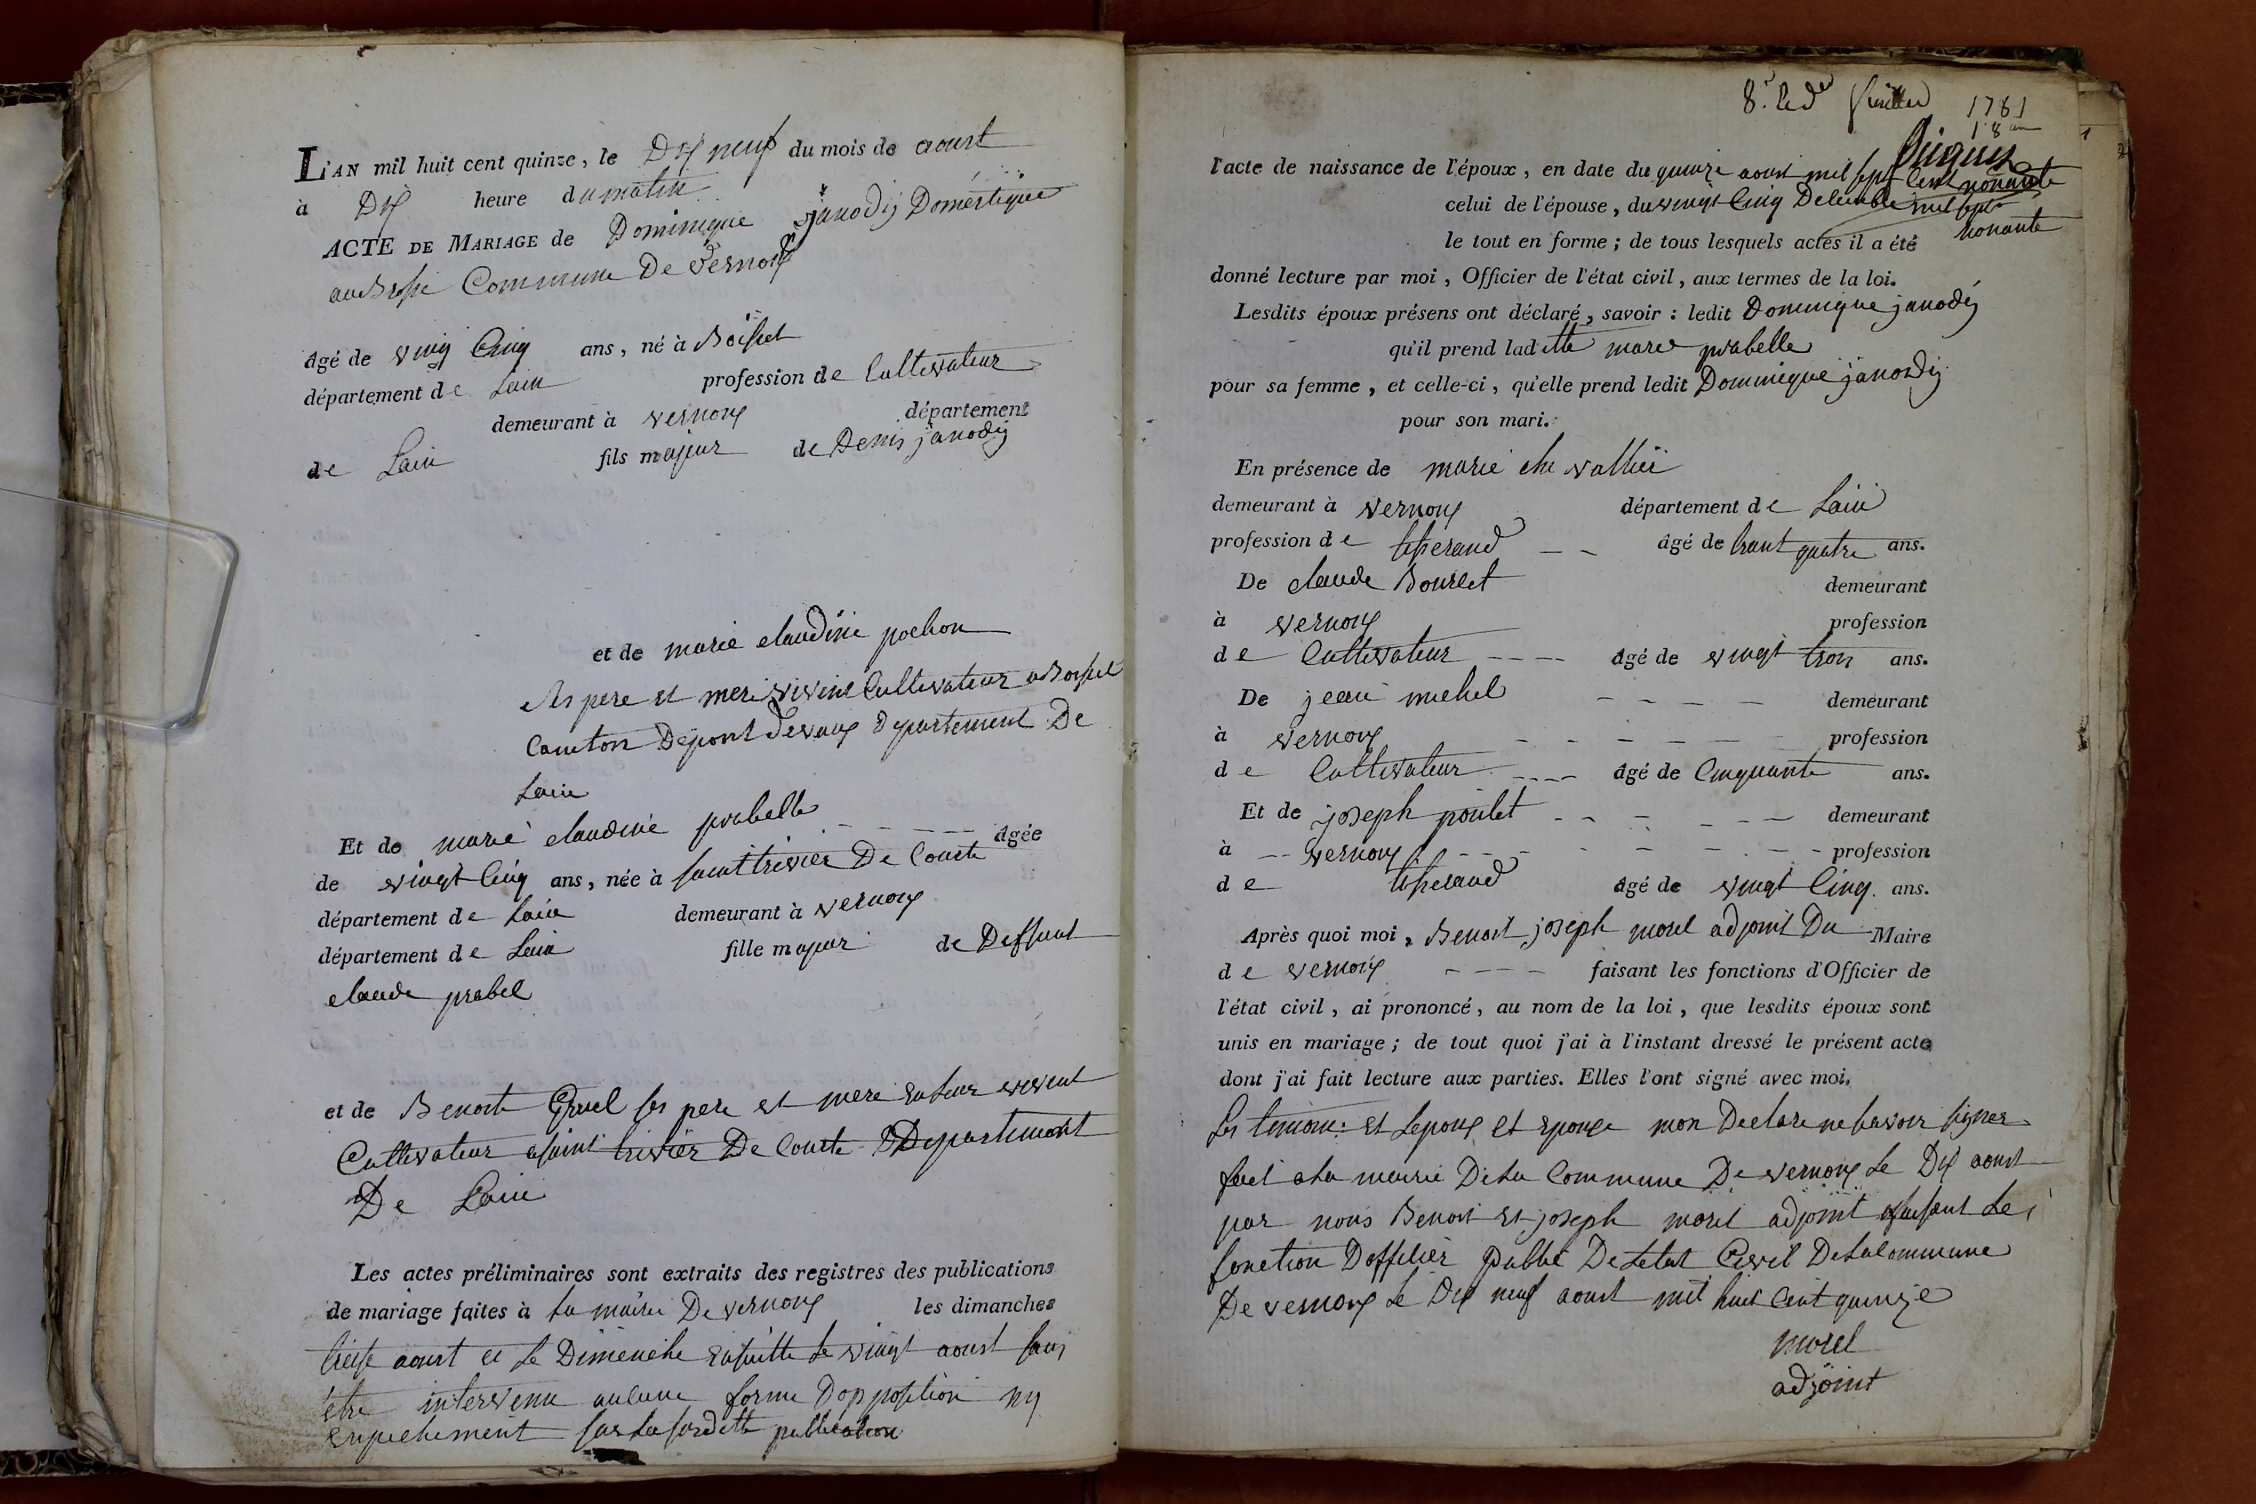 L'AN mil huit cent quinze, le Dix neuf du mois de aoust
à Dix heure du matin
ACTE DE MARIAGE de Dominique janodij Domestique
Commune De vernoux
âgé de vingt Cinq ans, né à Boisset
département de Lain profession de Cultivateur
demeurant à vernoux département
de Lain fils majeur de Denis janodij
et de marie claudine pochon
ses pere et mere vivint Cultivateur a Boisset
Canton De pont devaux département De
Lain
Et de marie claudine prabelle âgée
de vingt Cinq ans, née à saint trivier De Courte
département de Lain demeurant à vernoux
département de Lain fille majeur de Deffunt
claude prabel
et de Benoite ses pere et mere vivent
Cultivateur a saint trivier De Courte Département
De Lain
Les actes préliminaires sont extraits des registres des publications
de mariage faites à La mairie De vernoux les dimanches
treise aoust et Le Dimenche ensuitte Le vingt aoust sans
être intervenu aucune forme Dopposition ny
enpechement sur La susditte publication
8.e feuillet 1781
l'acte de naissance de l'époux, en date du quinze aoust mil sept Cent nonante
celui de l'épouse, du vingt Cinq Decembre mil sept
nonante
le tout en forme ; de tous lesquels actes il a été
donné lecture par moi, Officier de l'état civil, aux termes de la loi.
Lesdits époux présens ont déclaré, savoir : ledit Dominique janodij
qu'il prend laditte marie prabelle
pour sa femme, et celle-ci, qu'elle prend ledit Dominique janodij
pour son mari.
En présence de marie che vallier
demeurant à vernoux département de Lain
profession de tisserand âgé de trant quatre ans.
De claude Bourlet demeurant
à vernoux profession
de Cultivateur âgé de vingt trois ans.
De jean michel demeurant
à vernoux profession
de Cultivateur âgé de Cinquante ans.
Et de joseph poulet demeurant
à vernoux profession
de tisserand âgé de vingt Cinq ans.
Après quoi moi, Benoit joseph morel adjoint Du Maire
de vernoux faisant les fonctions d'Officier de
l'état civil, ai prononcé, au nom de la loi, que lesdits époux sont
unis en mariage ; de tout quoi j'ai à l'instant dressé le présent acte
dont j'ai fait lecture aux parties. Elles l'ont signé avec moi.
Les temoins et Lepoux et Epouse mon Declare ne savoir signer
fait a La mairie De La Commune De vernoux Le Dix aoust
par nous Benoit et joseph morel adjoint faisant Les
fonction Dofficier public De Letat Civil De La Commune
De vernoux Le Dix neuf aoust mil huit Cent quinze
morel
adjoint